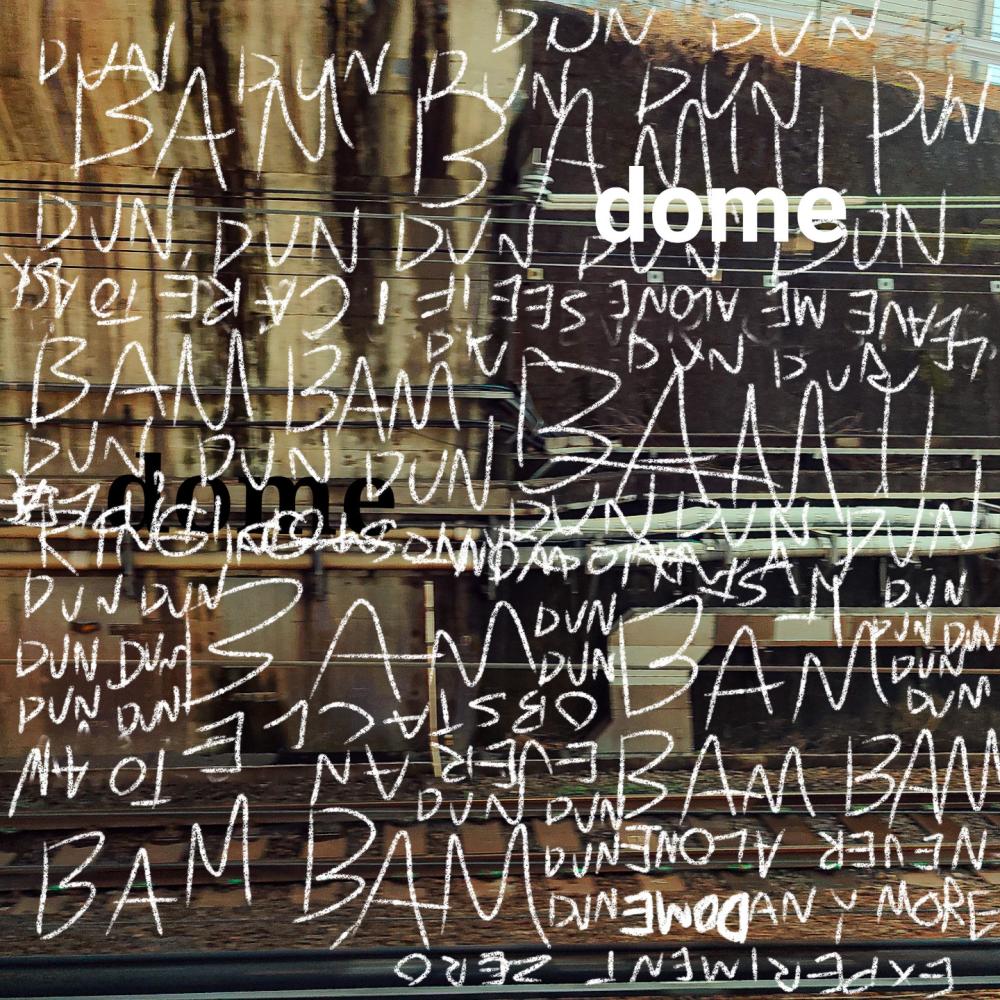 DUN DUN
DUN DUN DUN DUN DUN
BAM BAM!!
dome
DUN DUN DUN DUN DUN
LEAVE ME ALONE SEE IF I CARE TO ASK
DUN DUN DUN
BAM BAM BAM!!
DUN DUN DUN
dome
DUN DUN DUN
DUN DUN DUN
BAM DUN BAM DUN DUN
DUN DUN DUN DUN DUN
DUN DUN DUN
OBSTACLE
EVER AN
TO AM
BAM BAM
DUN DUN
BAM BAM
NEVER ALONE DUN
DUN DOME ANY MORE
EXPERIMENT ZERO